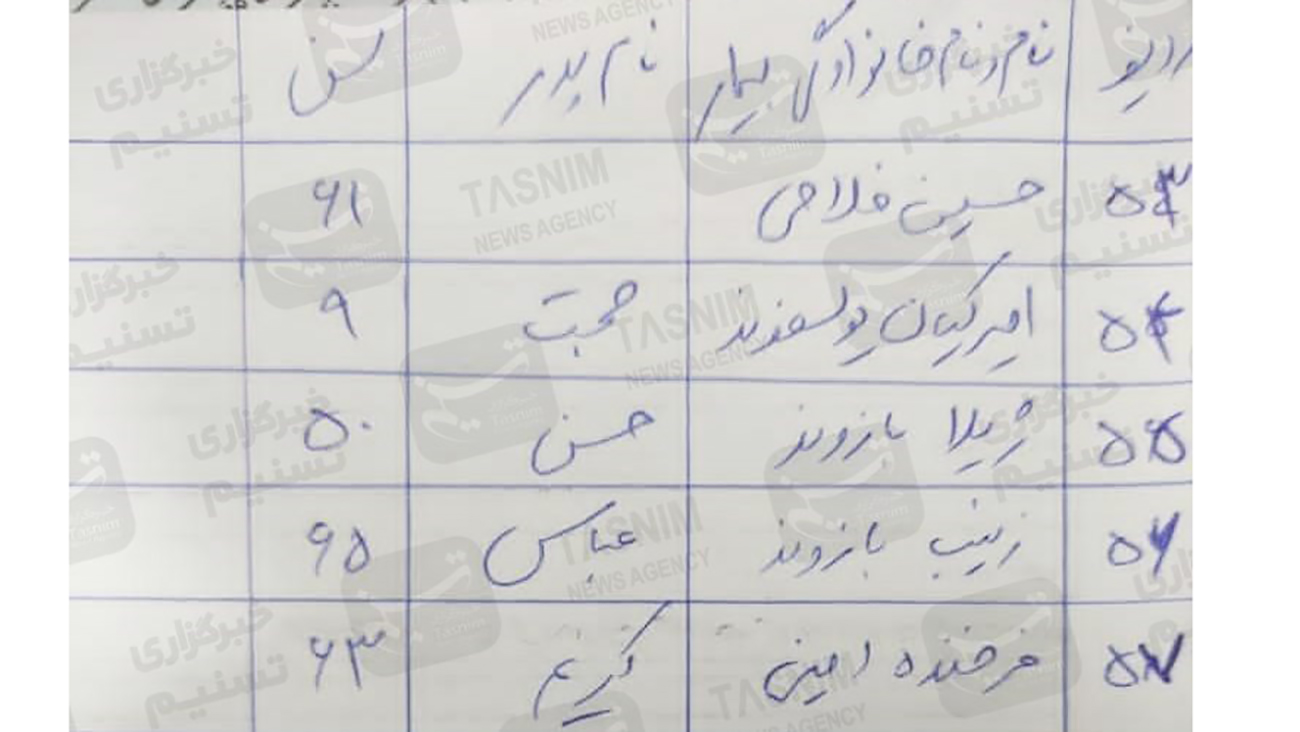 ردیف نام و نام خانوادگی بیمار نام پدر سن
۵۳ حسین فلاحی ۶۱
۵۴ امیرکیان یوسفوند حجت ۹
۵۵ ژیلا بازوند حسن ۵۰
۵۶ زینب بازوند عباس ۶۵
۵۷ فرخنده امینی کریم ۶۳
خبرگزاری تسنیم
TASNIM
NEWS AGENCY